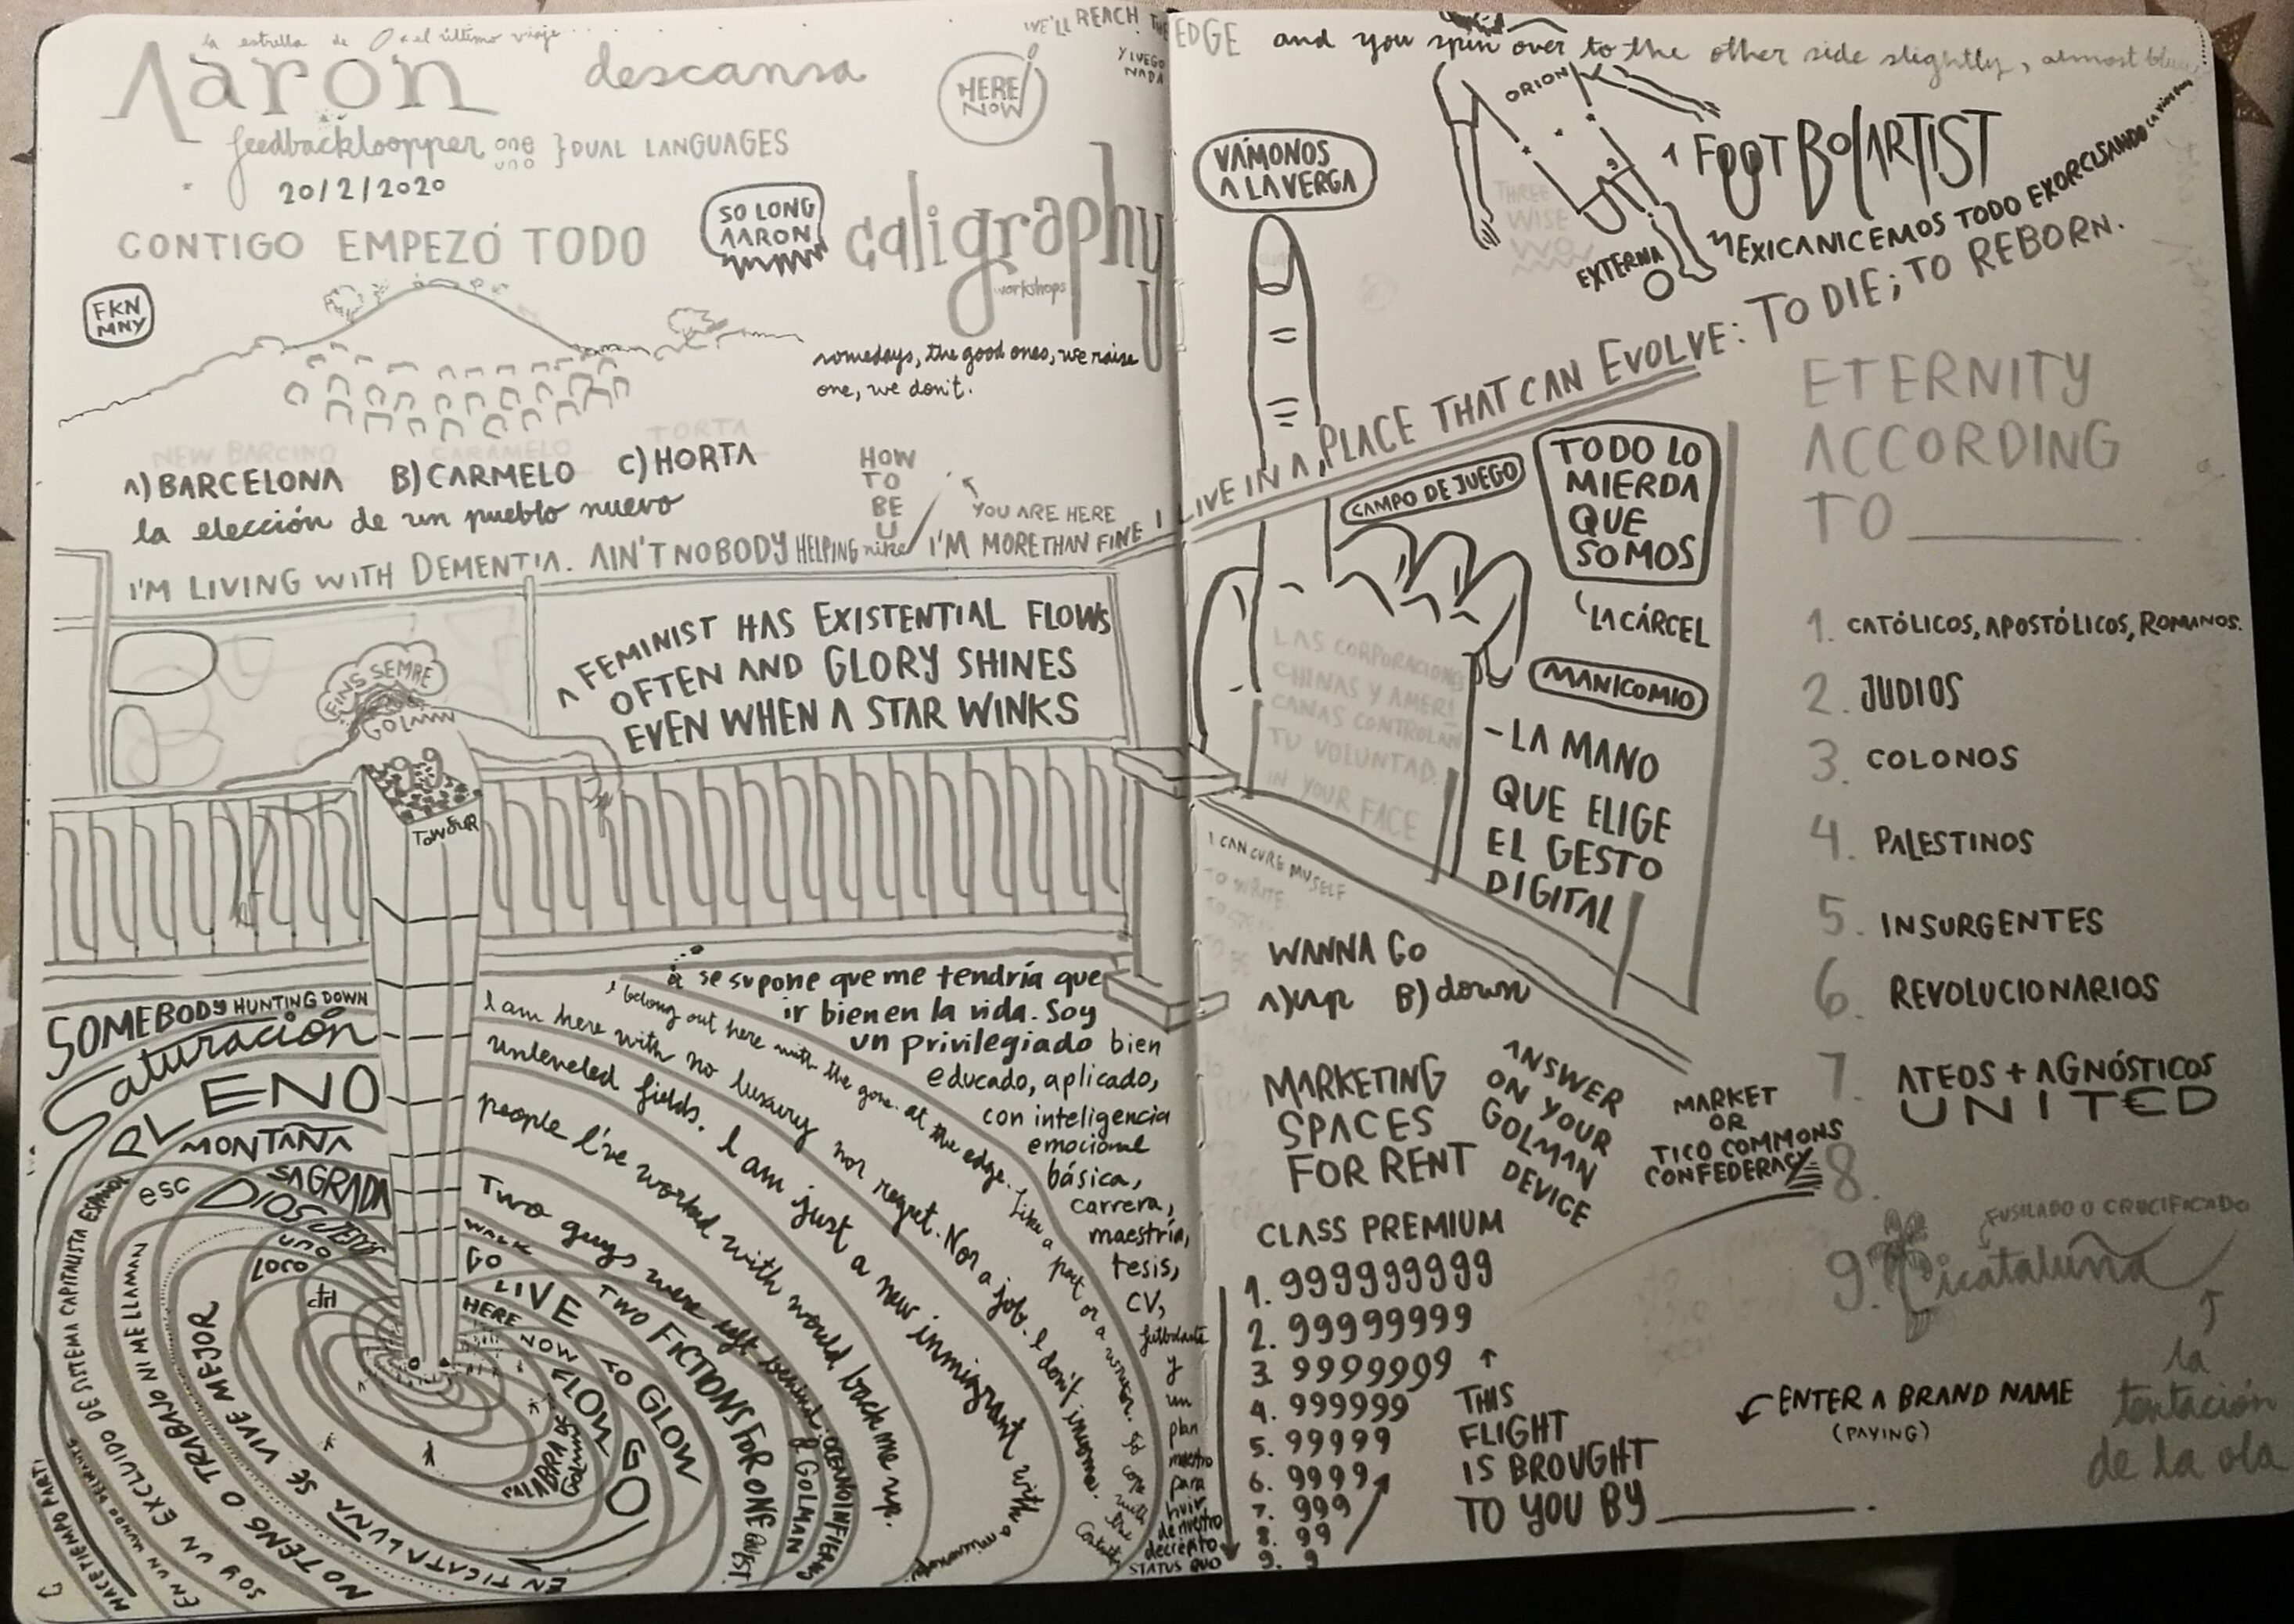 la estrella de el último viaje...
Aaron descansa
feedbackloopper one uno } DUAL LANGUAGES
20/2/2020
CONTIGO EMPEZÓ TODO
SO LONG
AARON
HERE
NOW
caligraphy
workshops
FKN
MNY
somedays, the good ones, we raise
one, we don't.
NEW BARCINO CARAMELO TORTA
A) BARCELONA B) CARMELO C) HORTA
la elección de un pueblo nuevo
HOW
TO
BE
U
YOU ARE HERE
I'M LIVING WITH DEMENTIA. AIN'T NOBODY HELPING nike I'M MORE THAN FINE I LIVE IN A PLACE THAT CAN EVOLVE: TO DIE; TO REBORN.
FINS SEMPRE
GOLMAN
A FEMINIST HAS EXISTENTIAL FLOWS
OFTEN AND GLORY SHINES
EVEN WHEN A STAR WINKS
SOMEBODY HUNTING DOWN
Saturación
PLENO
MONTAÑA
SAGRADA
esc
DIOS
UNO
LOCO
ctrl
WALK
GO
LIVE
HERE NOW
FLOW
TO GLOW
GO
PALABRA DE
TWO FICTIONS FOR ONE
Two guys were left behind
people I've worked with would back me up.
unleveled fields. I am just a new inmigrant with a
I am here with no luxury nor regret. Nor a job. I don't
I belong out here with the gone at the edge. Like a poet or a
EN TICATALUNA SE VIVE MEJOR
NO TENGO TRABAJO NI ME LLAMAN
SOY UN EXCLUIDO DE SISTEMA CAPITALISTA
EN UN MUNDO
HACE TIEMPO
se supone que me tendría que
ir bien en la vida. Soy
un privilegiado bien
educado, aplicado,
con inteligencia
emocional
básica,
carrera,
maestría,
tesis,
CV,
y
un
plan
maestro
para
huir
de nuestro
decrépito
STATUS QUO
WE'LL REACH THE EDGE and you spin over to the other side slightly, almost
Y LUEGO
NADA
VÁMONOS
A LA VERGA
ORION
THREE
WISE
EXTERNA
1 FOOTBOLARTIST
MEXICANICEMOS TODO EXORCISANDO
CAMPO DE JUEGO
TODO LO
MIERDA
QUE
SOMOS
LA CÁRCEL
MANICOMIO
- LA MANO
QUE ELIGE
EL GESTO
DIGITAL
LAS CORPORACIONES
CHINAS Y AMERI
CANAS CONTROLAN
TU VOLUNTAD.
IN YOUR FACE
I CAN CURE MYSELF
TO WRITE
WANNA GO
A) up B) down
MARKETING
SPACES
FOR RENT
ANSWER
ON YOUR
GOLMAN
DEVICE
MARKET
OR
TICO COMMONS
CONFEDERACY
CLASS PREMIUM
1. 999999999
2. 99999999
3. 9999999
4. 999999
5. 99999
6. 9999
7. 999
8. 99
9. 9
THIS
FLIGHT
IS BROUGHT
TO YOU BY
ENTER A BRAND NAME
(PAYING)
ETERNITY
ACCORDING
TO
1. CATÓLICOS, APOSTÓLICOS, ROMANOS.
2. JUDIOS
3. COLONOS
4. PALESTINOS
5. INSURGENTES
6. REVOLUCIONARIOS
7. ATEOS + AGNÓSTICOS
UNITED
8.
FUSILADO O CRUCIFICADO
9. Ticataluña
la
tentación
de la ola